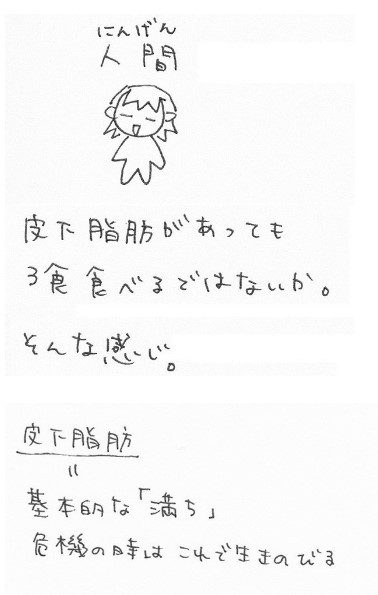 にんげん
人間
皮下脂肪があっても
3食食べるではないか。
そんな感じ。
皮下脂肪
〃
基本的な「満ち」
危機の時はこれで生きのびる